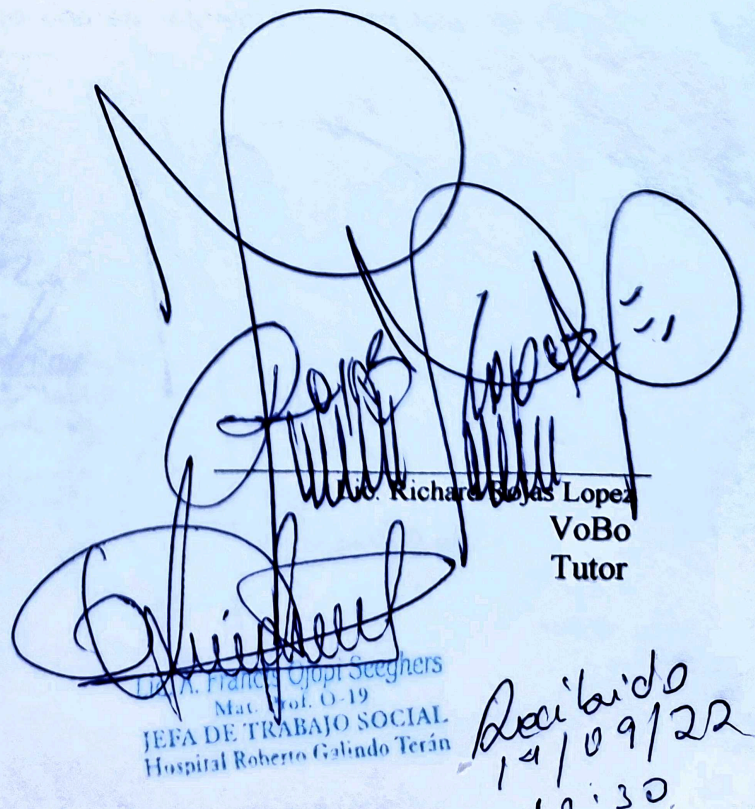 Rojas Lopez
Lic. Richard Rojas Lopez
VoBo
Tutor
Lic. A. Francis Ojopi Seeghers
Mat. Prof. O-19
JEFA DE TRABAJO SOCIAL
Hospital Roberto Galindo Terán
Recibido
/09/22
:30